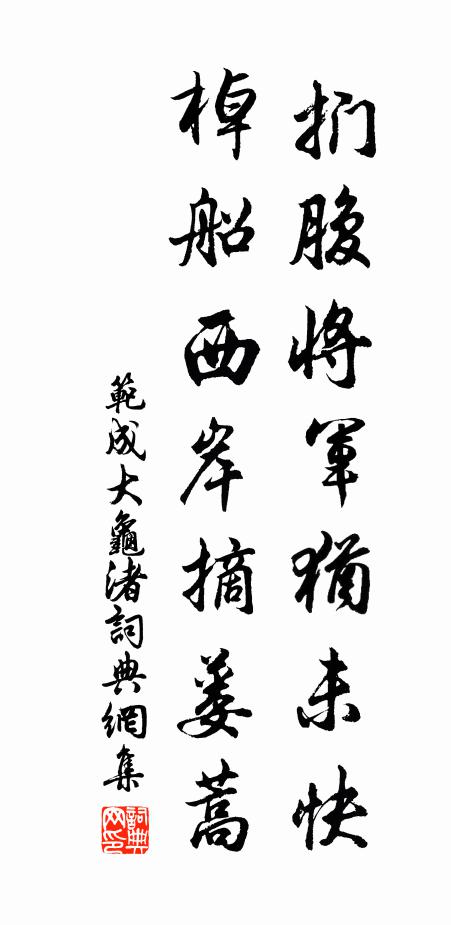 捫腹將軍猶未快
棹船西岸摘蔞蒿
範成大龜渚詞典網集
詞典网印